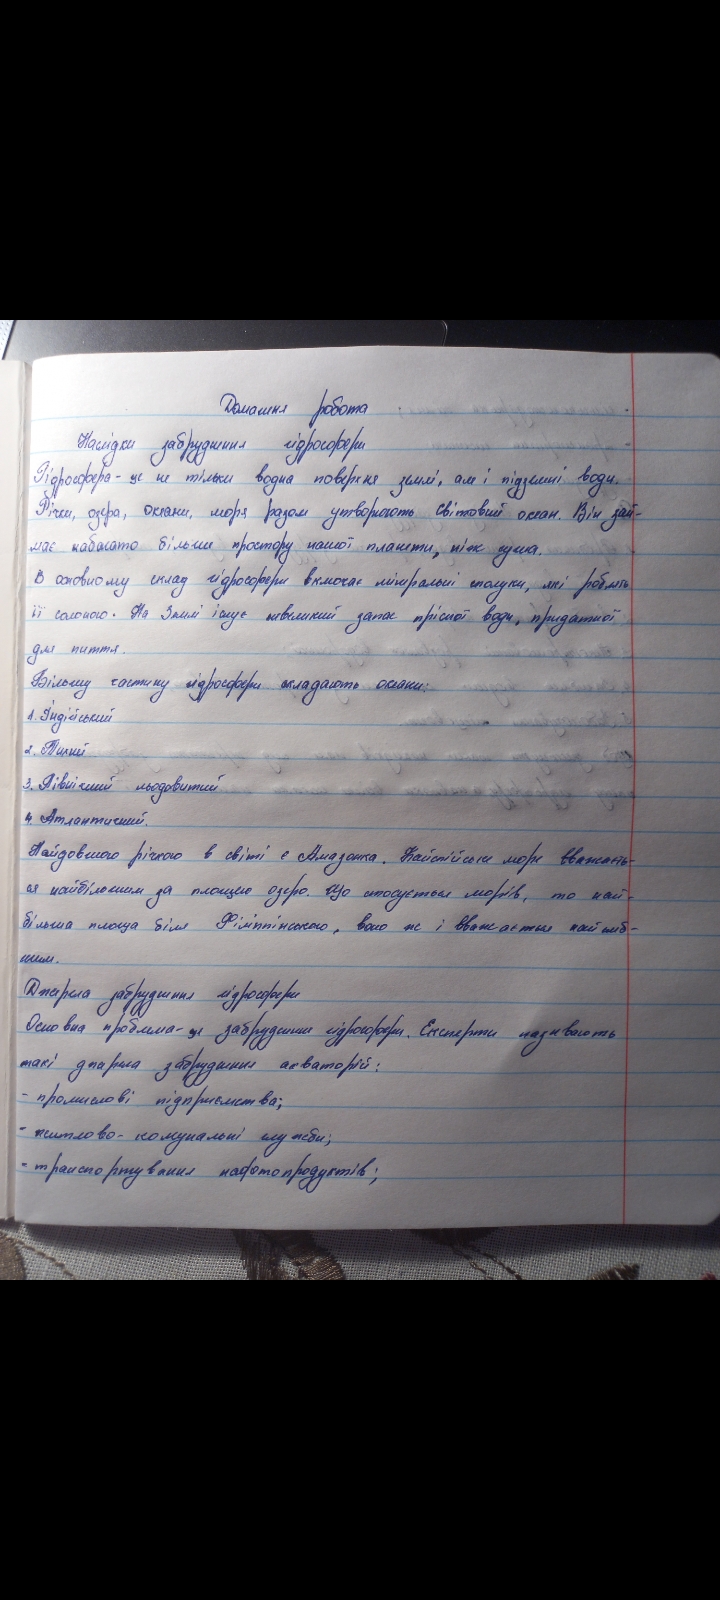 Домашня робота
Наслідки забруднення гідросфери
Гідросфера - це не тільки водна поверхня землі, а й і підземні води.
Річки, озера, океани, моря разом утворюють світовий океан. Він зай-
має набагато більше простору нашої планети, ніж суша.
В основному склад гідросфери включає мінеральні сполуки, які роблять
її солоною. На Землі існує невеликий запас прісної води, придатної
для пиття.
Більшу частину гідросфери складають океани:
1. Індійський
2. Тихий
3. Північний льодовитий
4. Атлантичний.
Найдовшою річкою в світі є Амазонка. Каспійське море вважаєть-
ся найбільшим за площею озеро. Що стосується морів, то най-
більша площа біля Філіппінського, воно ж і вважається найглиб-
шим.
Джерела забруднення гідросфери
Основна проблема - це забруднення гідросфери. Експерти називають
такі джерела забруднення акваторій:
- промислові підприємства;
- житлово-комунальні служби;
- транспортування нафтопродуктів;